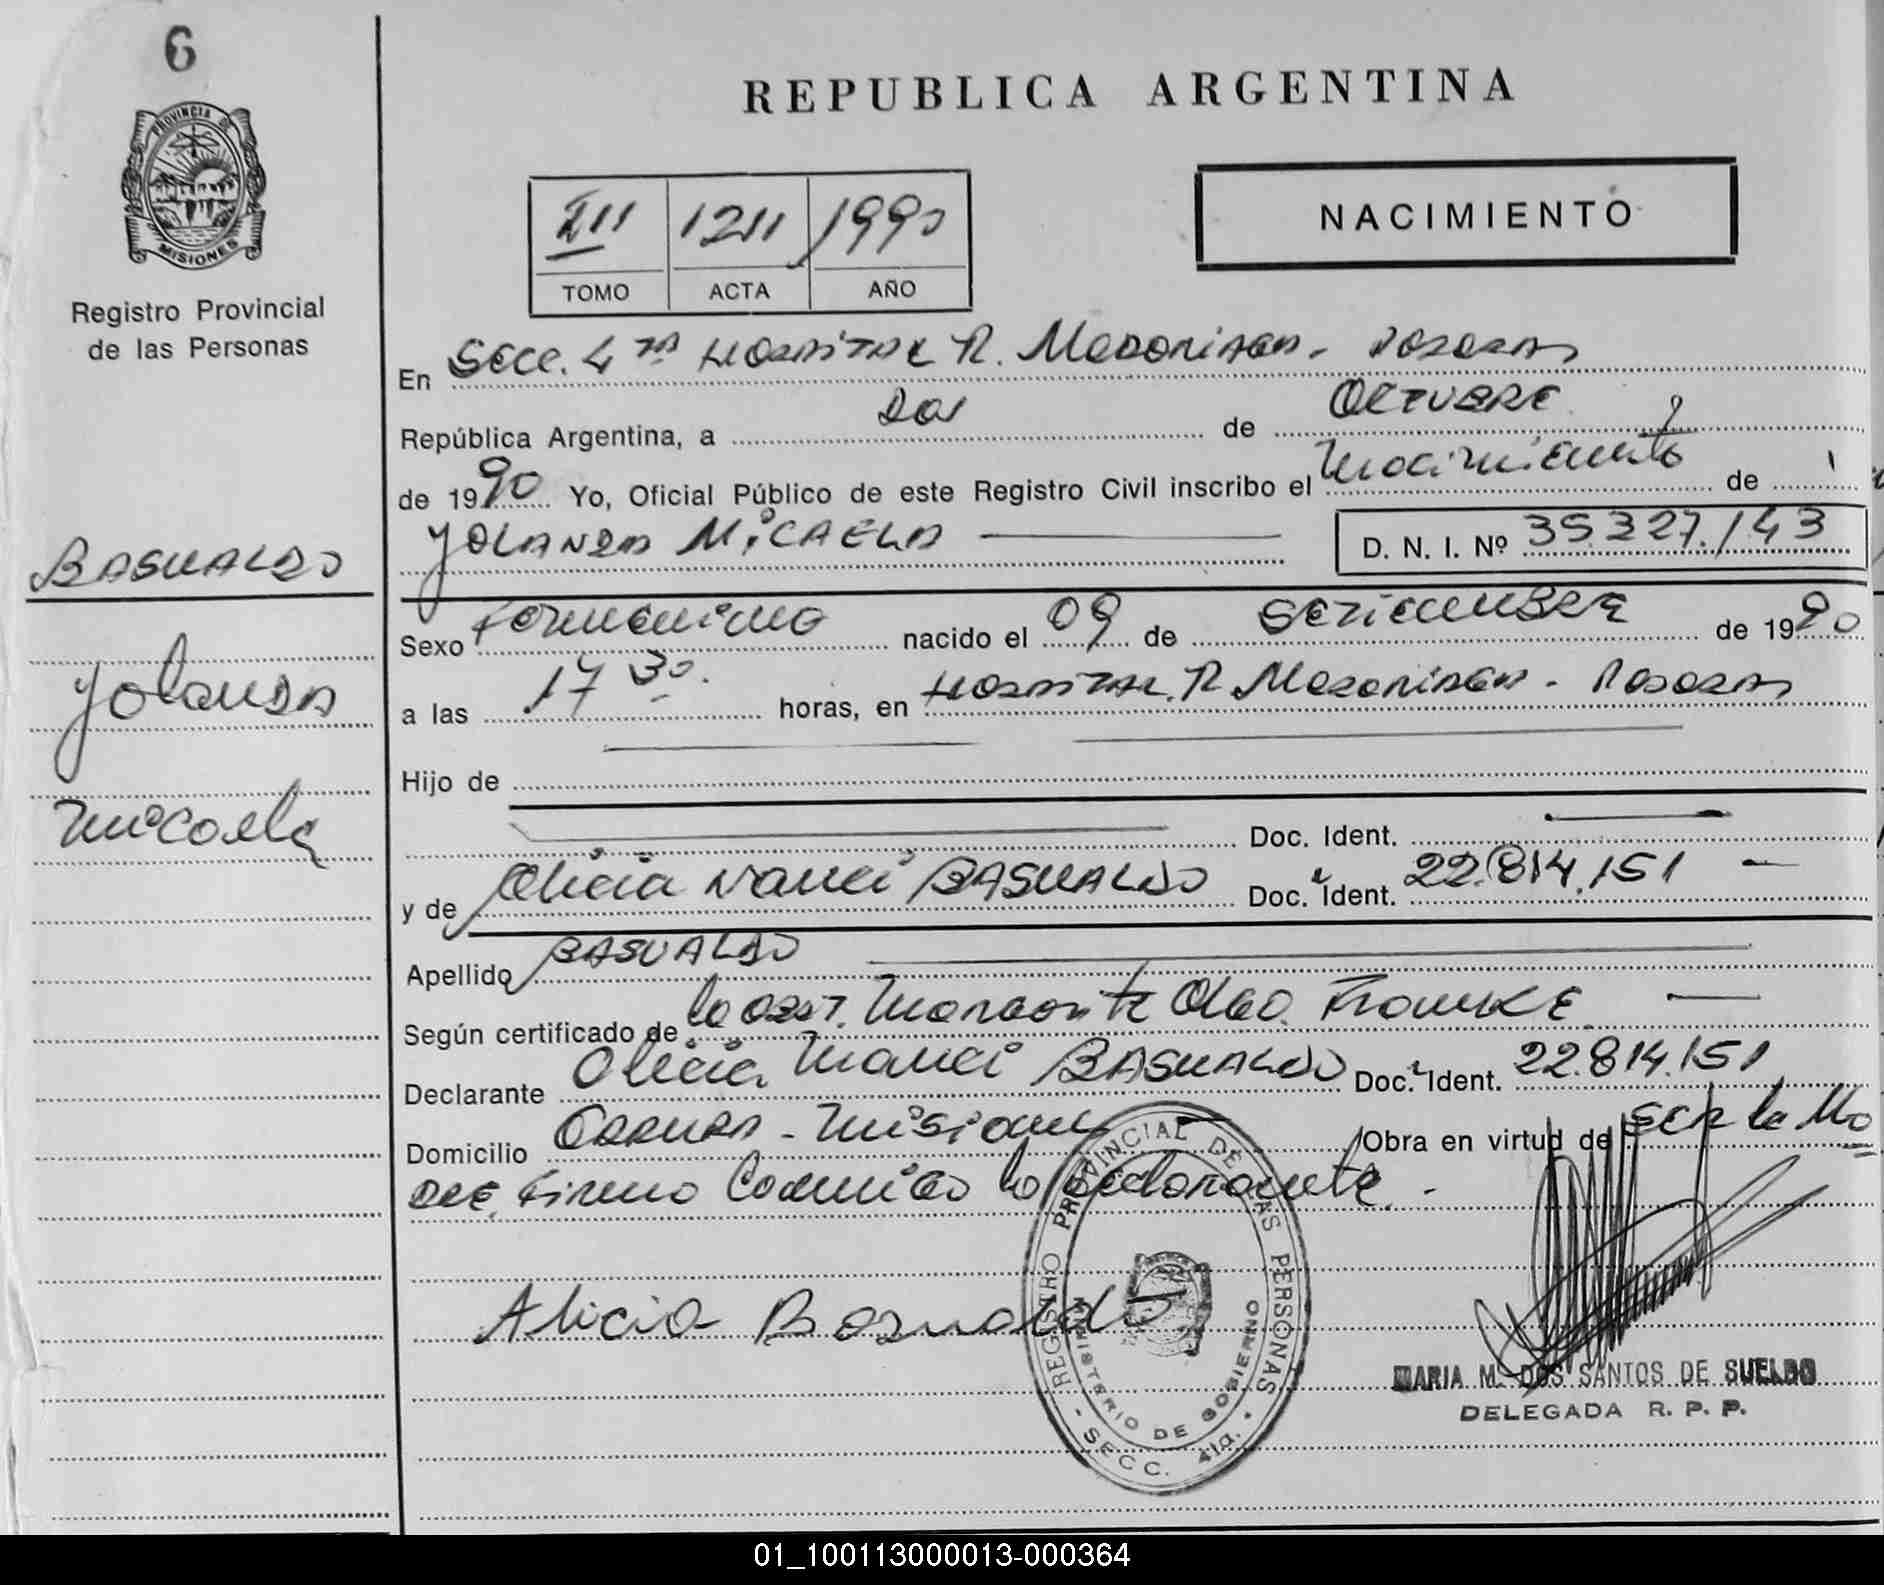 6
PROVINCIA DE
MISIONES
Registro Provincial
de las Personas
BASUALDO
Yolanda
Micaela
REPUBLICA ARGENTINA
III 1211 1990
TOMO ACTA AÑO
NACIMIENTO
En Secc. 4ta Hospital R. Madariaga - Posadas
República Argentina, a Dos de OCTUBRE
de 1990 Yo, Oficial Público de este Registro Civil inscribo el Nacimiento de
YOLANDA MICAELA D. N. I. Nº 35.327.143
Sexo Femenino nacido el 09 de SETIEMBRE de 1990
a las 17 30 horas, en Hospital R Madariaga - Posadas
Hijo de
Doc. Ident.
y de Alicia Nanci BASUALDO Doc. Ident. 22.814.151
Apellido BASUALDO
Según certificado de la Obst. Margarita Olga
Declarante Alicia Nanci BASUALDO Doc. Ident. 22.814.151
Domicilio - Misiones Obra en virtud de ser la Ma
dre. Firma Conmigo la declarante. -
Alicia Basualdo
REGISTRO PROVINCIAL DE LAS PERSONAS
MINISTERIO DE GOBIERNO
- SECC. 4ta. -
MARIA M. DOS SANTOS DE SUELDO
DELEGADA R. P. P.
01_100113000013-000364